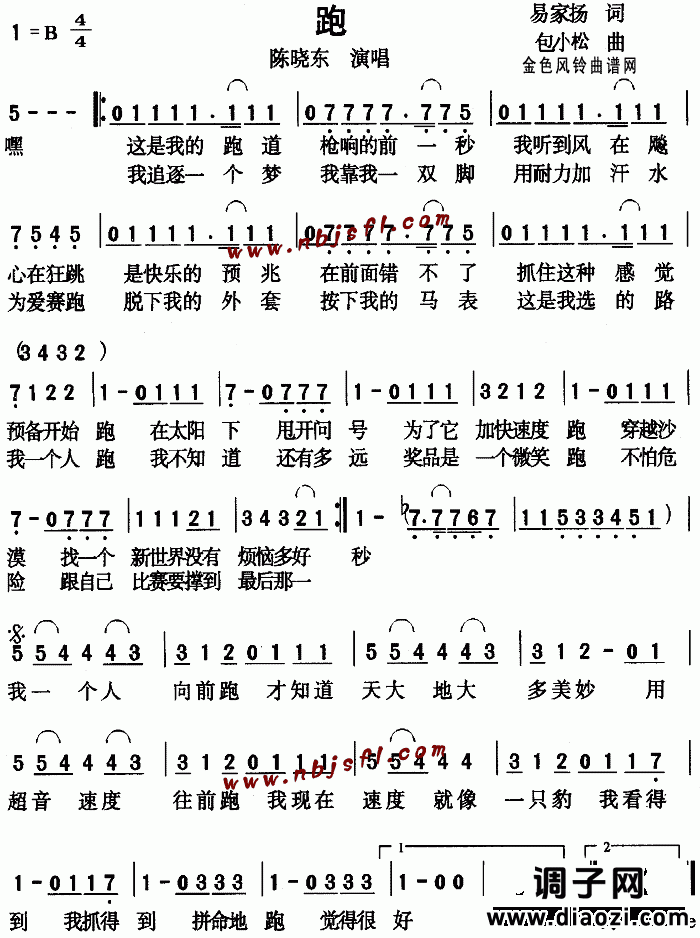 跑
1=B 4/4
易家扬 词
陈晓东 演唱
包小松 曲
金色风铃曲谱网
5 - - - |: 0 1 1 1 1 . 1 1 1 | 0 7 7 7 7 . 7 7 5 | 0 1 1 1 1 . 1 1 1
嘿 这是我的 跑 道 枪响的前 一 秒 我听到风 在 飚
我追逐一 个 梦 我靠我一 双 脚 用耐力加 汗 水
7 5 4 5 | 0 1 1 1 1 . 1 1 1 | 0 7 7 7 7 . 7 7 5 | 0 1 1 1 1 . 1 1 1
www.nbjsfl.com
心在狂跳 是快乐的 预 兆 在前面错 不 了 抓住这种 感 觉
为爱赛跑 脱下我的 外 套 按下我的 马 表 这是我选 的 路
(3 4 3 2 )
7 1 2 2 | 1 - 0 1 1 1 | 7 - 0 7 7 7 | 1 - 0 1 1 1 | 3 2 1 2 | 1 - 0 1 1 1
预备开始 跑 在太阳 下 甩开问 号 为了它 加快速度 跑 穿越沙
我一个人 跑 我不知 道 还有多 远 奖品是 一个微笑 跑 不怕危
7 - 0 7 7 7 | 1 1 1 2 1 | 3 4 3 2 1 :| 1 - ♭7 . 7 7 6 7 | 1 1 5 3 3 4 5 1 )
漠 找一个 新世界没有 烦恼多好 秒
险 跟自己 比赛要撑到 最后那一
5 5 4 4 4 3 | 3 1 2 0 1 1 1 | 5 5 4 4 4 3 | 3 1 2 - 0 1
我 一 个 人 向 前 跑 才 知 道 天 大 地 大 多 美 妙 用
5 5 4 4 4 3 | 3 1 2 0 1 1 1 | 5 5 4 4 4 | 3 1 2 0 1 1 7
www.nbjsfl.com
超 音 速 度 往 前 跑 我 现 在 速 度 就 像 一 只 豹 我 看 得
1 - 0 1 1 7 | 1 - 0 3 3 3 | 1 - 0 3 3 3 | 1 1 - 0 0 | 2
到 我 抓 得 到 拼 命 地 跑 觉 得 很 好
调子网
www.diaozi.com